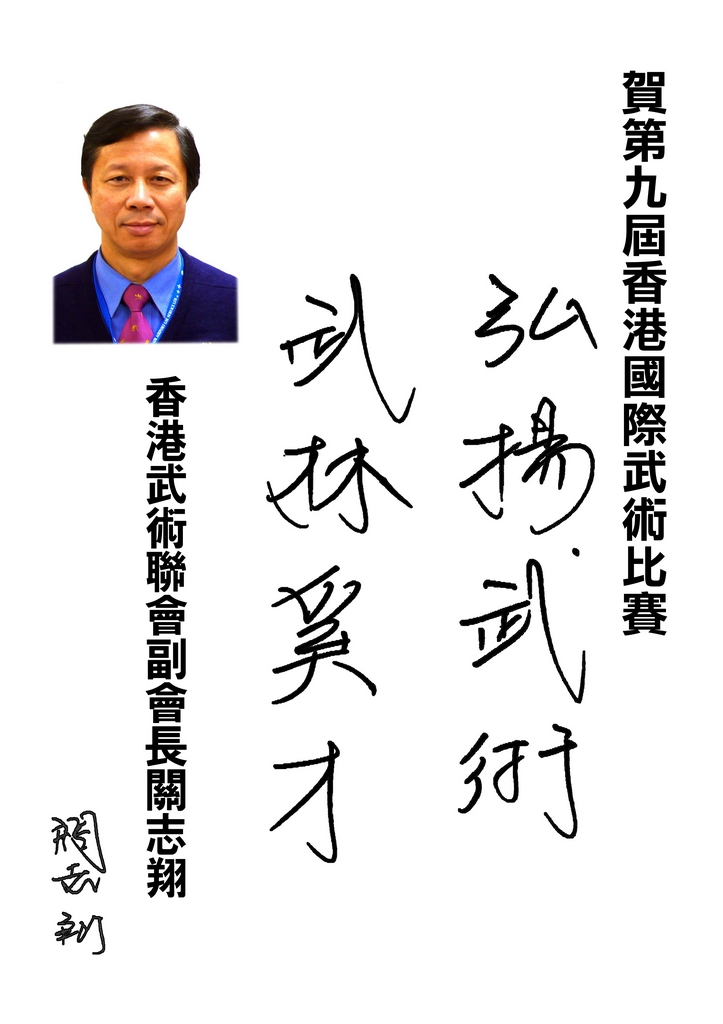 賀第九屆香港國際武術比賽
弘揚武術
武林奚才
香港武術聯會副會長關志翔